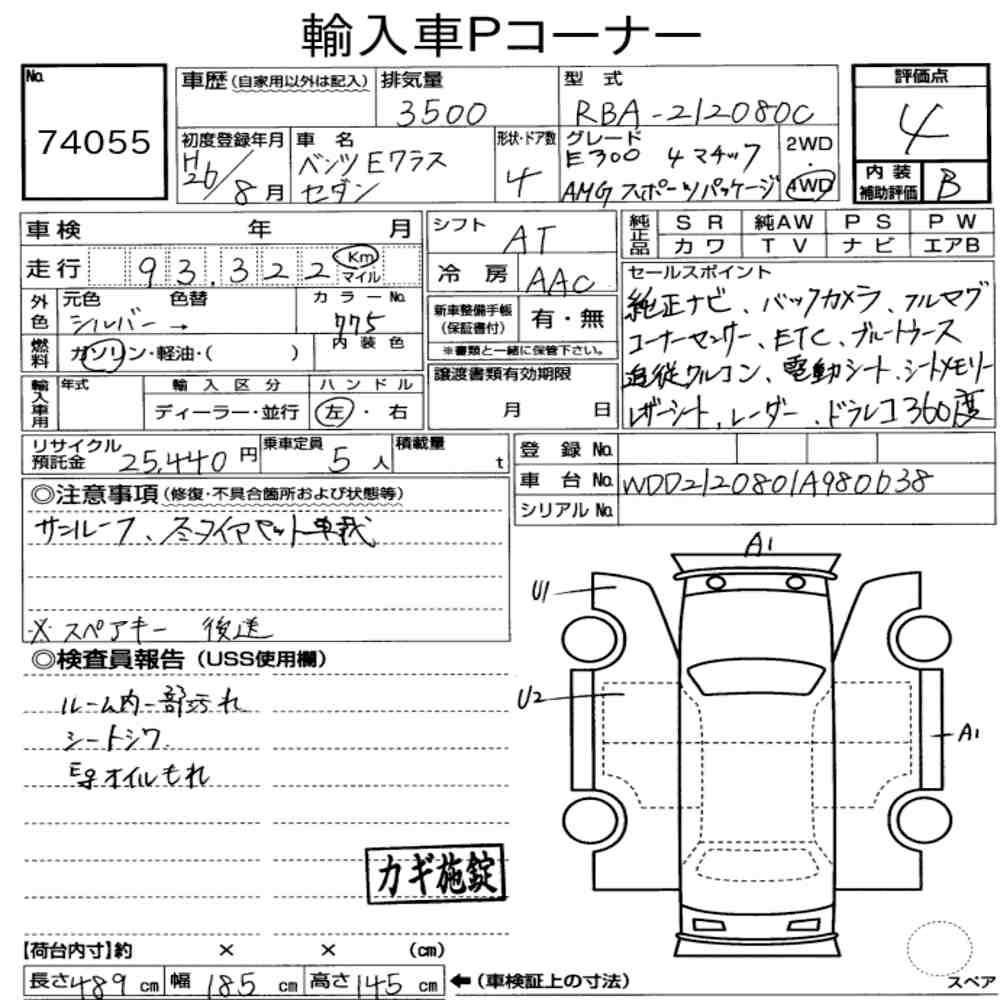 輸入車Pコーナー
No.
74055
車歴(自家用以外は記入)
排気量
3500
型式
RBA-212080C
評価点
4
初度登録年月
H26/8月
車名
ベンツEクラス
セダン
形状・ドア数
4
グレード
E300 4マチック
AMG スポーツパッケージ
2WD
4WD
内装
補助評価
B
車検 年 月
走行 93,322 Km
マイル
シフト AT
冷房 AAC
純正品
SR 純AW PS PW
カワ TV ナビ エアB
外色
元色 色替
シルバー→
カラーNo.
775
燃料
ガソリン・軽油・( )
内装色
新車整備手帳
(保証書付)
有・無
※書類と一緒に保管下さい。
セールスポイント
純正ナビ、バックカメラ、アルマグ
コーナーセンサー、ETC、ブルートゥース
追従クルコン、電動シート、シートメモリー
レザーシート、レーダー、ドラレコ360度
輸入車用
年式
輸入区分
ディーラー・並行
ハンドル
左・右
譲渡書類有効期限
月 日
リサイクル
預託金 25,440円
乗車定員
5人
積載量
t
登録No.
車台No. WDD2120801A980638
シリアルNo.
◎注意事項(修復・不具合箇所および状態等)
サンルーフ、冬タイヤセット車載
※スペアキー 後送
◎検査員報告(USS使用欄)
ルーム内一部汚れ
シートシワ
Egオイルもれ
A1
U1
U2
A1
カギ施錠
【荷台内寸】約 × × (cm)
長さ489cm 幅185cm 高さ145cm ←(車検証上の寸法)
スペア